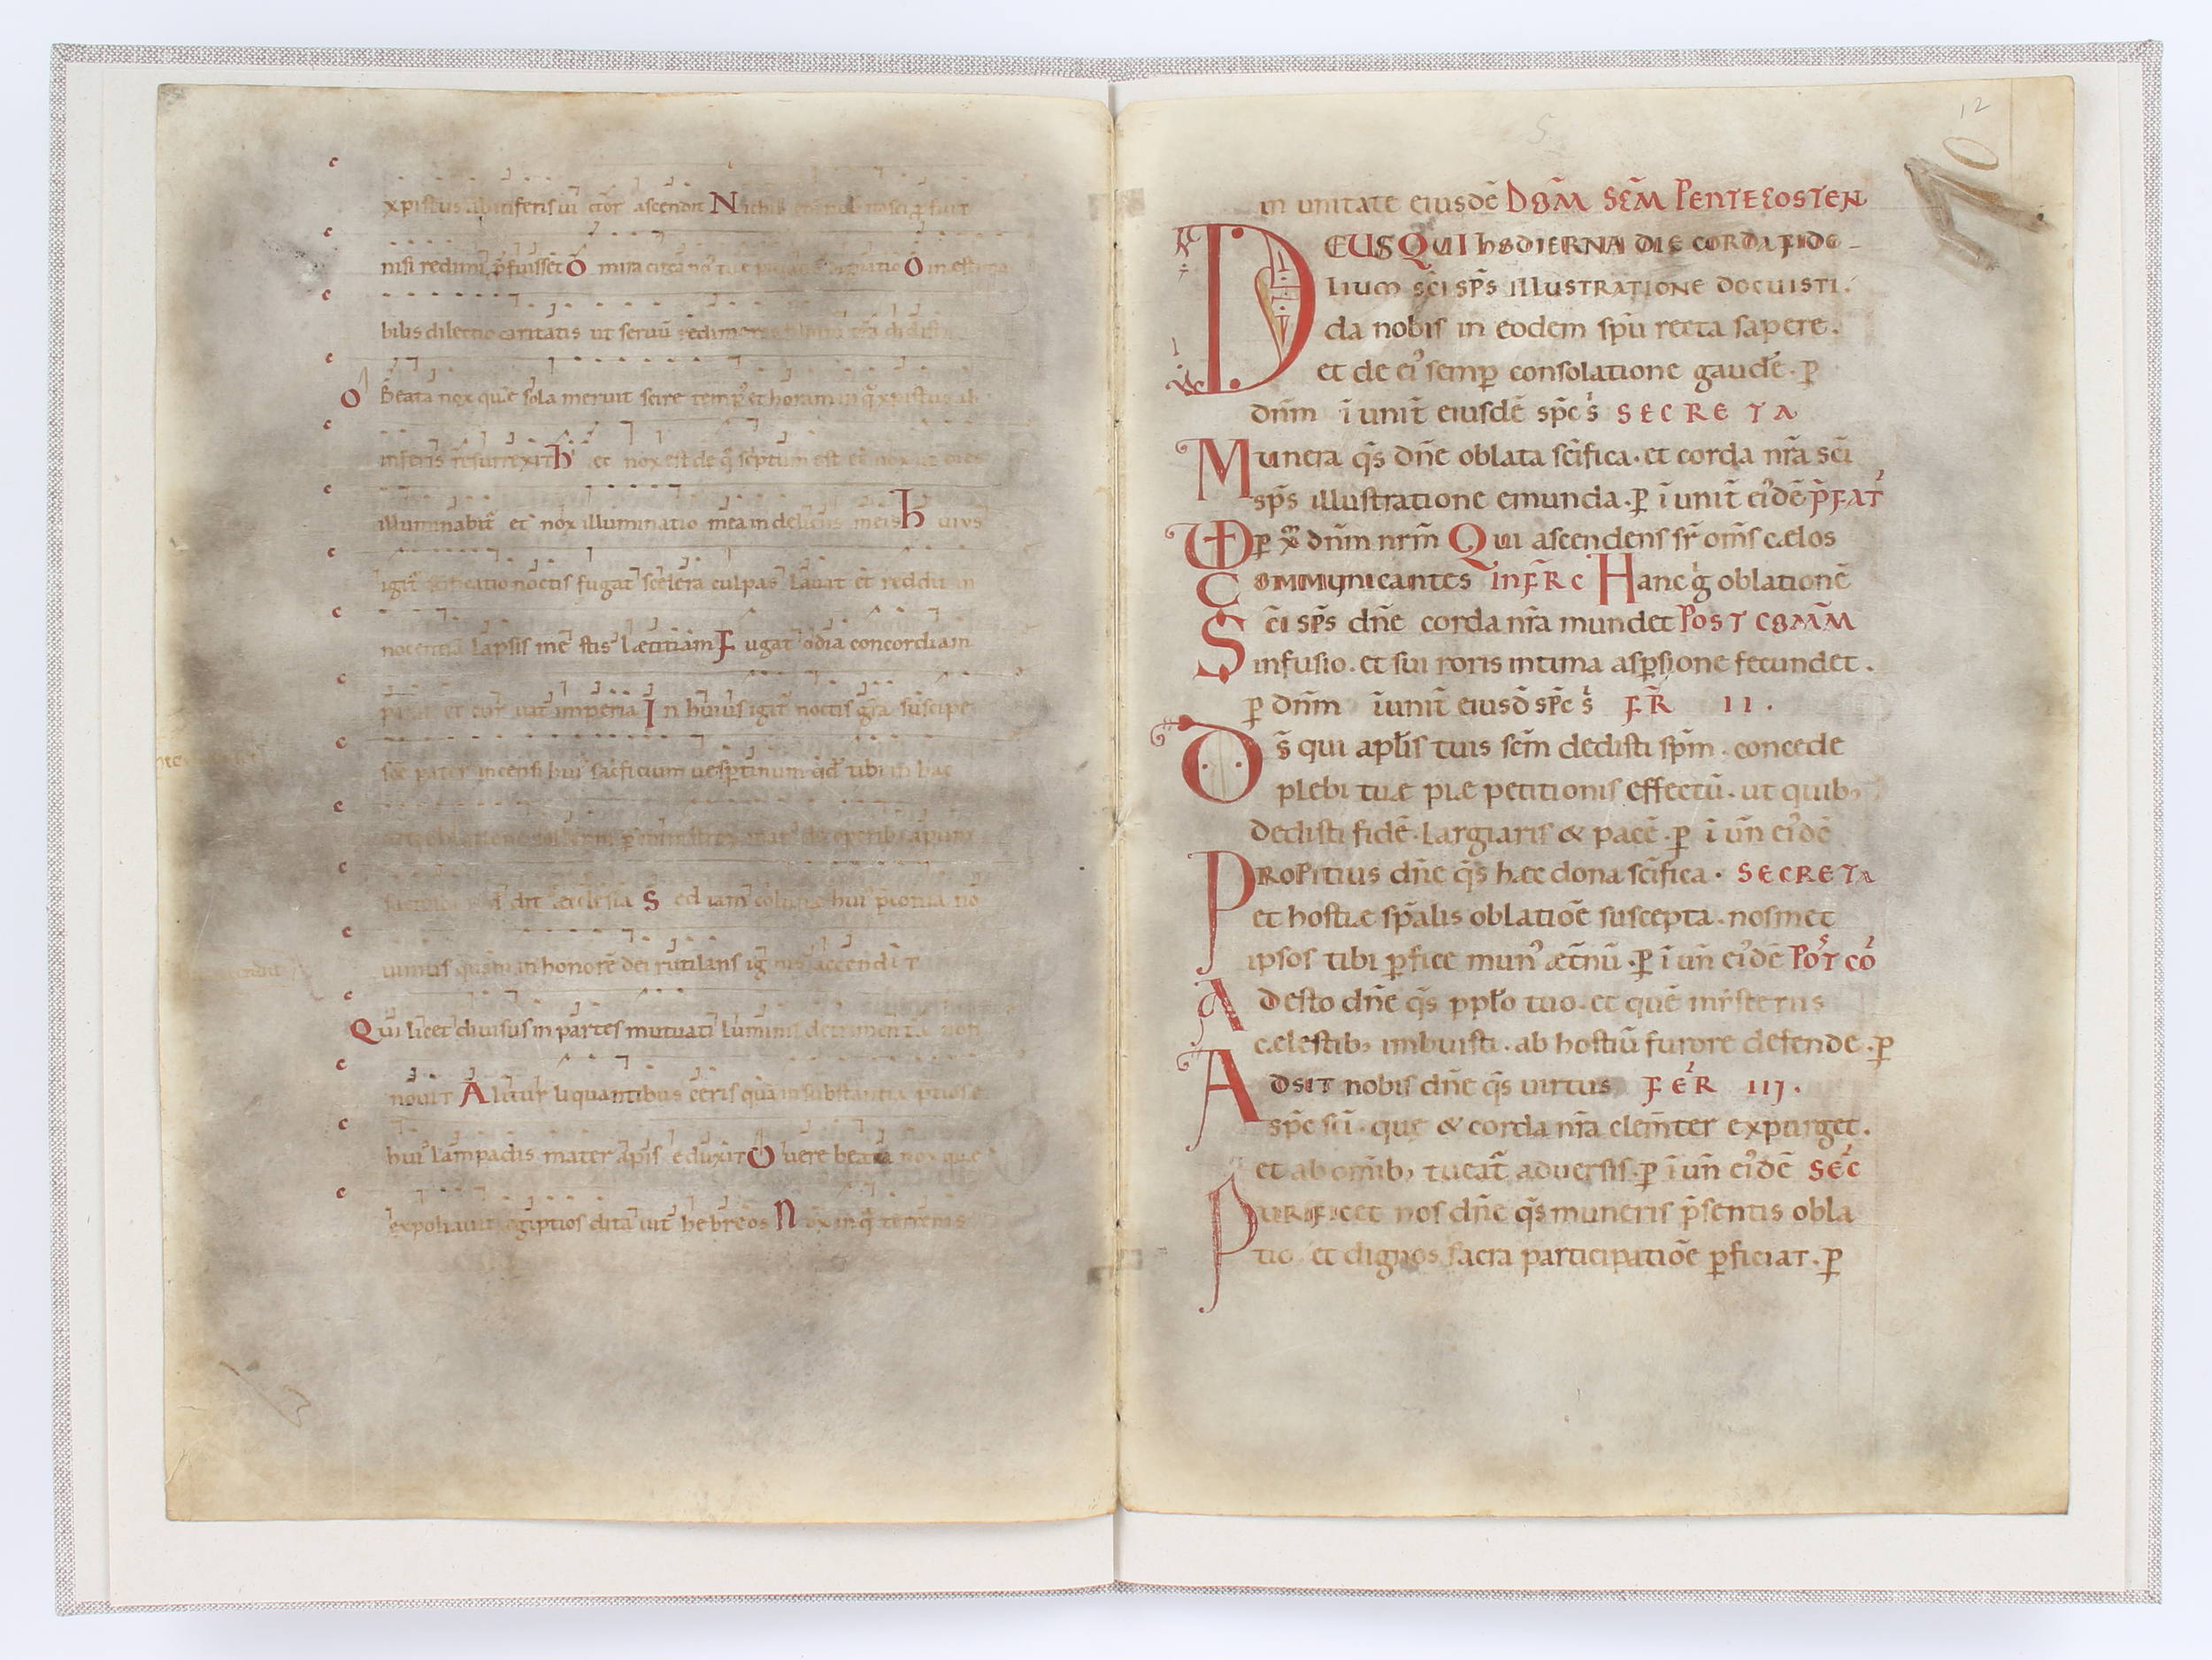 xpistus ab inferis uictor ascendit Nichil
nisi redimi p̄fuisset O mira circa nos tuę O inęstima
bilis dilectio caritatis ut seruū redimeres
O Beata nox quę sola meruit scire tempꝰ et horam in q̄ xpistus ab
inferis resurrexit h ec nox est de q̄ scriptum est et nox ut dies
illuminabit̄ et nox illuminatio mea in deliciis meis h uius
igit̄ sc̄ificatio noctis fugat scelera culpas lauat et reddit in
nocentiā lapsis mestis lætitiam F ugat odia concordiam
parat et curuat imperia I n huius igit̄ noctis gr̄a suscipe
sc̄e pater incensi huiꝰ sacrificium uesp̄tinum qd̄ tibi in hac
æcclesia S ed iam columnę huiꝰ p̄conia no
uimus quam in honorē dei rutilans ignis accendit
Qui licet diuisus in partes mutuati luminis detrimenta non
nouit A litur liquantibus ceris quā in substantiā p̄tiosę
huiꝰ lampadis mater apis eduxit O uere beata nox quę
expoliauit egiptios ditauit hebreos N ox in q̄ terrenis
12
in unitate eiusdē DOM̄ SC̄M PENTECOSTEN
DEUS QUI HODIERNA DIE CORDA FIDE
LIUM sc̄i sp̄s ILLUSTRATIONE DOCUISTI.
da nobis in eodem sp̄u recta sapere.
et de eiꝰ semp̄ consolatione gaudē. p̄
dnm̄ ī unit̄ eiusdē sp̄c s̄ SECRETA
Munera q̄s dn̄e oblata sc̄ifica. et corda nr̄a sc̄i
sp̄s illustratione emunda. p̄ ī unit̄ eiꝰdē p̄FAT
VD p̄ xp̄m dnm̄ nrm̄ Qui ascendens sr̄ om̄s cælos
COMMUNICANTES INFR̄ C Hanc g̊ oblationē
S c̄i sp̄s dn̄e corda nr̄a mundet POST COM̄M
infusio. et sui roris intima asp̄sione fecundet.
p̄ dnm̄ ī unit̄ eiusd̄ sp̄c s̄ FR̄ II.
D s̄ qui aplīs tuis sc̄m dedisti sp̄m. concede
plebi tuæ piæ petitionis effectū. ut quibꝫ
dedisti fidē. largiaris & pacē. p̄ ī un̄ eiꝰdē
PROPITIUS dn̄e q̄s hæc dona sc̄ifica. SECRETA
et hostiæ sp̄alis oblatiōe suscepta. nosmet
ipsos tibi p̄fice munꝰ æt̄nū. p̄ ī un̄ eiꝰdē POST CO
A desto dn̄e q̄s pplō tuo. et quē mist̄eriis
cælestibꝫ imbuisti. ab hostiū furore defende. p̄
A DSIT nobis dn̄e q̄s uirtus FER III.
sp̄c sc̄i. que & corda nr̄a clem̄ter expurget.
et ab om̄ibꝫ tueat̄ aduersis. p̄ ī un̄ eiꝰdē SEC
PURIFICET nos dn̄e q̄s muneris p̄sentis obla
tio et dignos sacra participatiōe p̄ficiat. p̄